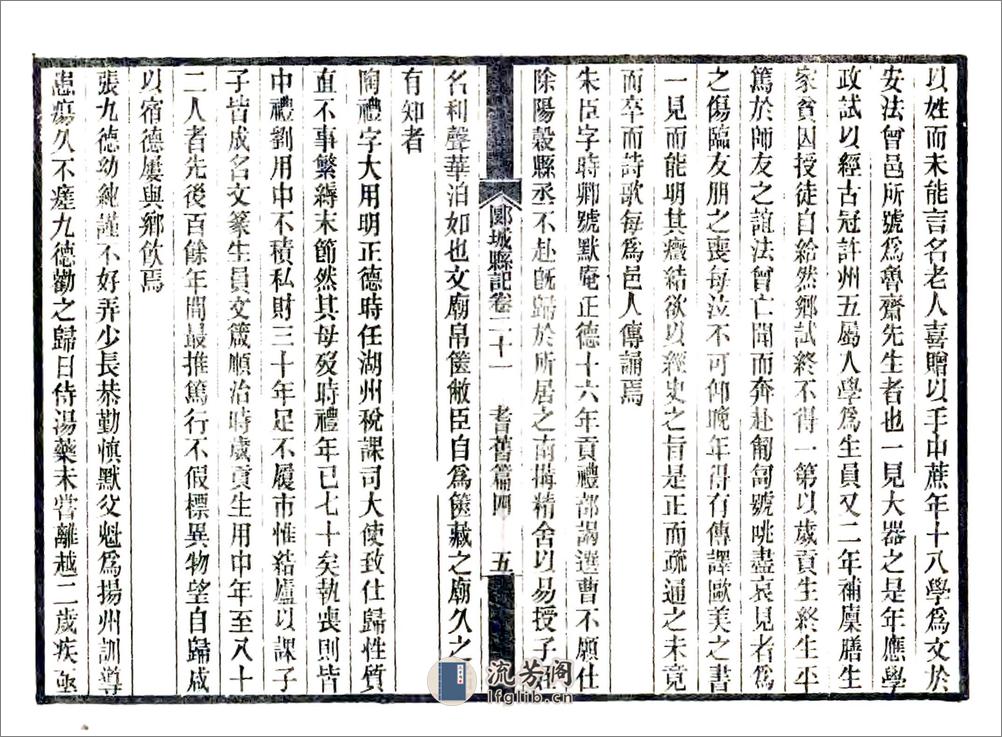 以姓而未能言名老人喜贈以手中蔗年十八學爲文於
安法曾邑所號爲魯齋先生者也一見大器之是年應學
政試以經古冠許州五屬人學爲生員又二年補廩膳生
家貧因授徒自給然鄉試終不得一第以歲貢生終生平
篤於師友之誼法曾亡聞而奔赴匍匐號咷盡哀見者爲
之傷臨友朋之喪每泣不可仰晚年得有傳譯歐美之書
一見而能明其癥結欲以經史之旨是正而疏通之未竟
而卒而詩歌每爲邑人傳誦焉
朱臣字時卿號默庵正德十六年貢禮部謁選曹不願仕
除陽穀縣丞不赴旣歸於所居之南搆精舍以易授子
名利聲華泊如也文廟帛篋敝臣自爲篋藏之廟久之
有知者
郾城縣記卷二十一 耆舊篇四 五
陶禮字大用明正德時任湖州稅課司大使致仕歸性質
直不事繁縟末節然其母歿時禮年已七十矣執喪則皆
中禮劉用中不積私財三十年足不履市惟結廬以課子
子皆成名文篆生員文箴順治時歲貢生用中年至八十
二人者先後百餘年間最推篤行不假標異物望自歸咸
以宿德屢與鄉飲焉
張九德幼純謹不好弄少長恭勤愼默父魁爲揚州訓導
患瘍久不瘥九德勸之歸日侍湯藥未嘗離越二歲疾亟
流芳閣
lfglib.cn